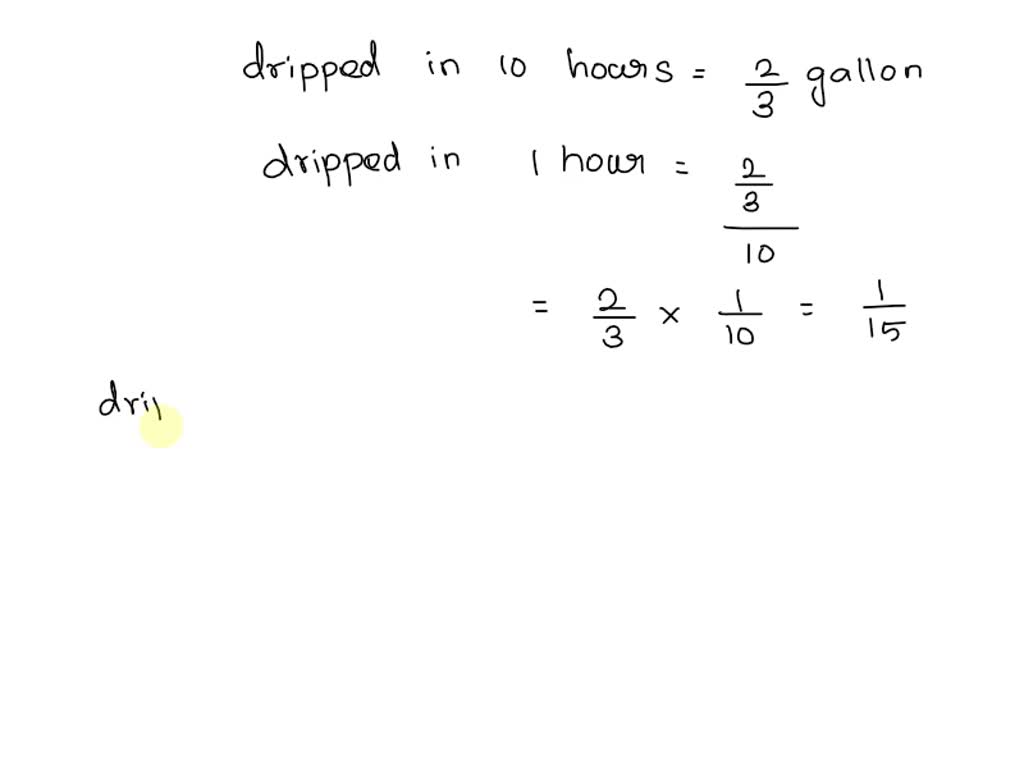 dripped in 10 hours = 2/3 gallon
dripped in 1 hour = 2/3/10
= 2/3 × 1/10 = 1/15